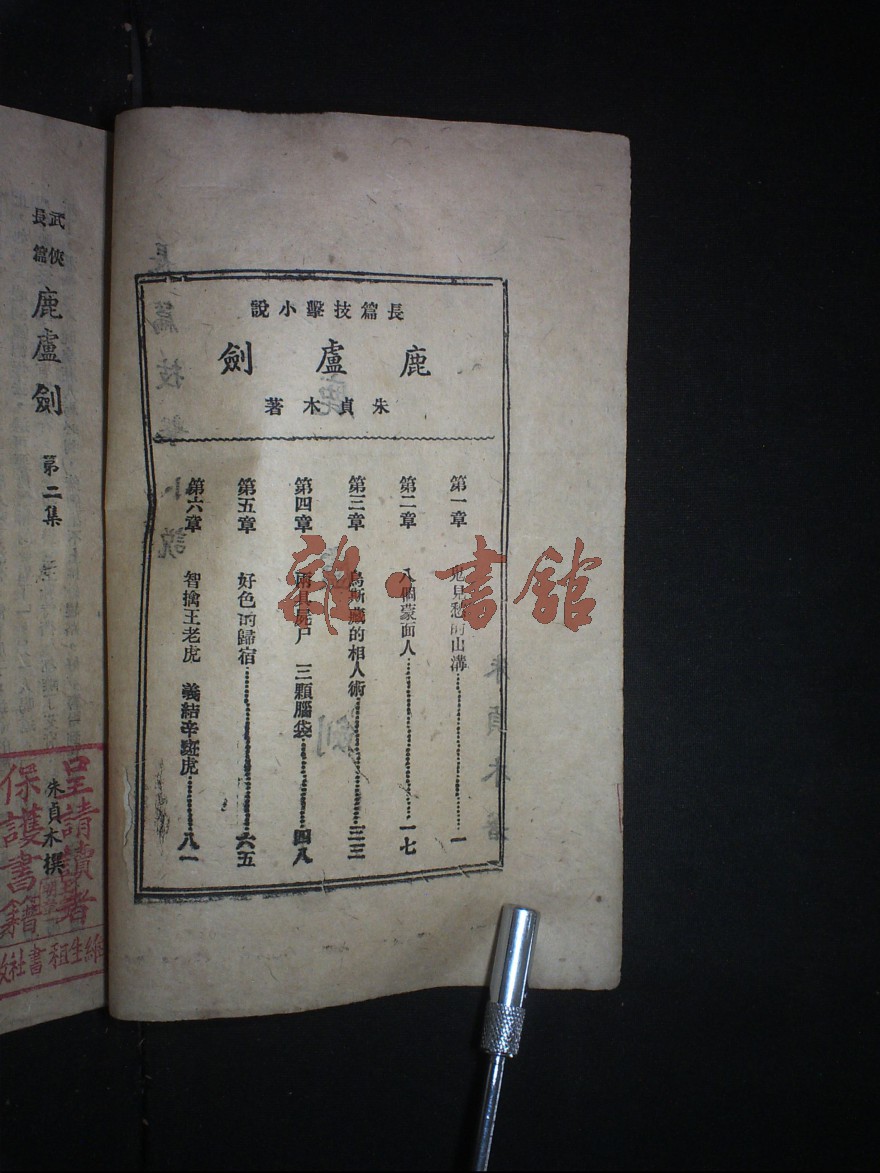 長篇技擊小說
鹿盧劍
朱貞木著
第一章 鬼見愁的山溝……一
第二章 八個蒙面人……一七
第三章 烏斯藏的相人術……三三
第四章 兩具屍戶 三顆腦袋……四八
第五章 好色的歸宿……六五
第六章 智擒王老虎 義結辛斑虎……八一
武俠
長篇
鹿盧劍
第二集
朱貞木撰
呈請讀者
保護書籍
維生租書社
雜·書館